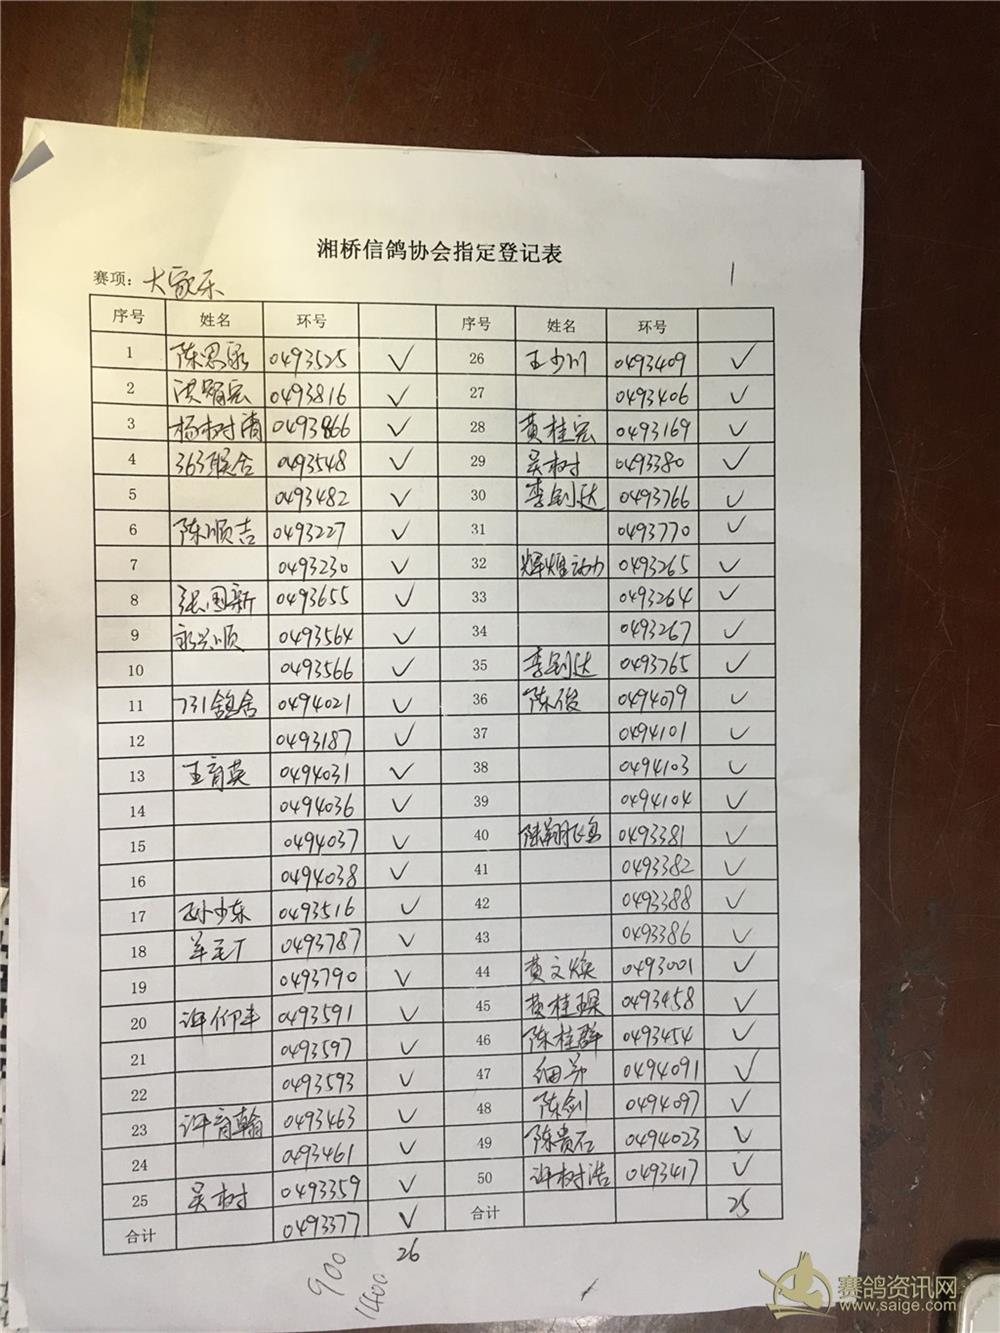 湘桥信鸽协会指定登记表
赛项: 大家乐 1
序号 姓名 环号 序号 姓名 环号
1 陈思永 0493525 ✓ 26 王少川 0493409 ✓
2 0493816 ✓ 27 0493406 ✓
3 杨树清 0493866 ✓ 28 黄桂宏 0493169 ✓
4 363联合 0493548 ✓ 29 吴树 0493380 ✓
5 0493482 ✓ 30 李刚达 0493766 ✓
6 陈顺吉 0493227 ✓ 31 0493770 ✓
7 0493230 ✓ 32 辉煌动力 0493265 ✓
8 张国新 0493655 ✓ 33 0493264 ✓
9 永兴顺 0493564 ✓ 34 0493267 ✓
10 0493566 ✓ 35 李刚达 0493765 ✓
11 731鸽舍 0494021 ✓ 36 陈俊 0494079 ✓
12 0493187 ✓ 37 0494101 ✓
13 王育英 0494031 ✓ 38 0494103 ✓
14 0494036 ✓ 39 0494104 ✓
15 0494037 ✓ 40 0493381 ✓
16 0494038 ✓ 41 0493382 ✓
17 孙少东 0493516 ✓ 42 0493388 ✓
18 0493787 ✓ 43 0493386 ✓
19 0493790 ✓ 44 黄文焕 0493001 ✓
20 许仰丰 0493591 ✓ 45 黄桂琛 0493458 ✓
21 0493597 ✓ 46 陈桂群 0493454 ✓
22 0493593 ✓ 47 细弟 0494091 ✓
23 许育翰 0493463 ✓ 48 陈剑 0494097 ✓
24 0493461 ✓ 49 陈贵石 0494023 ✓
25 吴树 0493359 ✓ 50 许树浩 0493417 ✓
合计 0493377 ✓ 合计 25
26
900
1400
赛鸽资讯网
www.saige.com